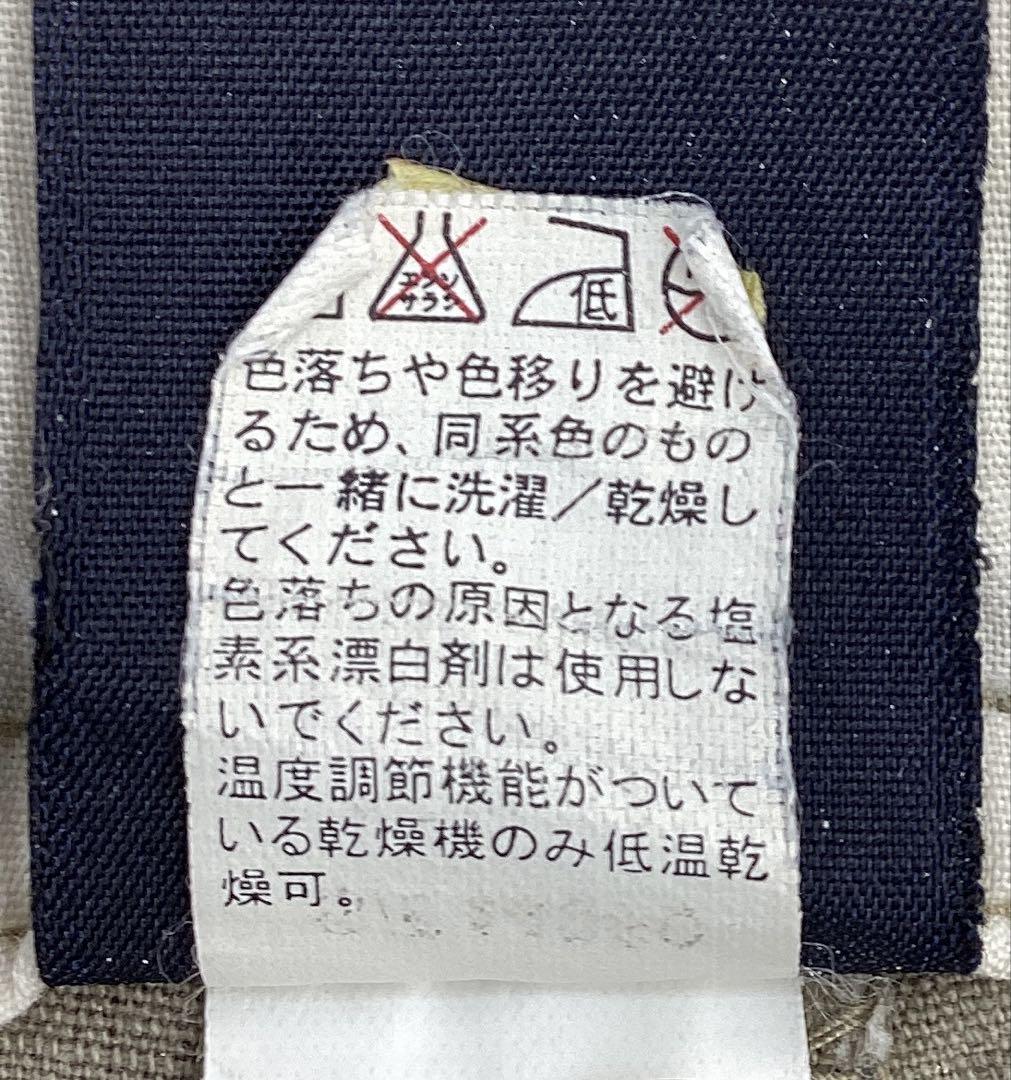 エンソ
サラシ
低
色落ちや色移りを避け
るため、同系色のもの
と一緒に洗濯／乾燥し
てください。
色落ちの原因となる塩
素系漂白剤は使用しな
いでください。
温度調節機能がついて
いる乾燥機のみ低温乾
燥可。